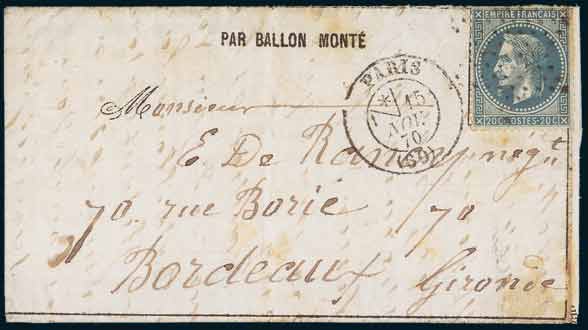 PAR BALLON MONTÉ
EMPIRE FRANCAIS
20C POSTES 20C
PARIS
15
NOV.
70
(60)
Monsieur
E. De Ramey negt
70, rue Borie 70
Bordeaux Gironde